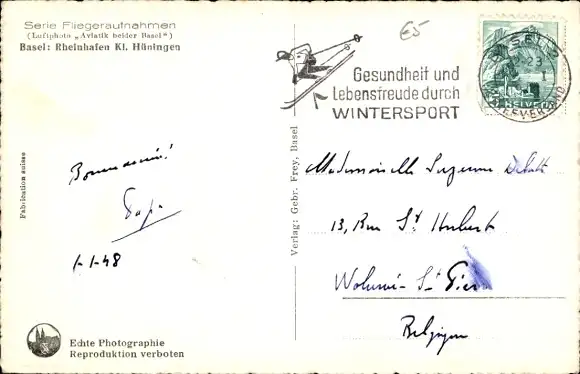 Serie Fliegeraufnahmen
(Luftphoto „Aviatik beider Basel")
Basel: Rheinhafen Kl. Hüningen
€5
Gesundheit und
Lebensfreude durch
WINTERSPORT
HELVETIA
BASEL 2
BRIEFVERSAND
Fabrication suisse
Papa
1-1-48
Verlag: Gebr. Frey, Basel
Mademoiselle Suzanne
13, Rue St Hubert
Woluwé-St Pierre
Belgique
Echte Photographie
Reproduktion verboten